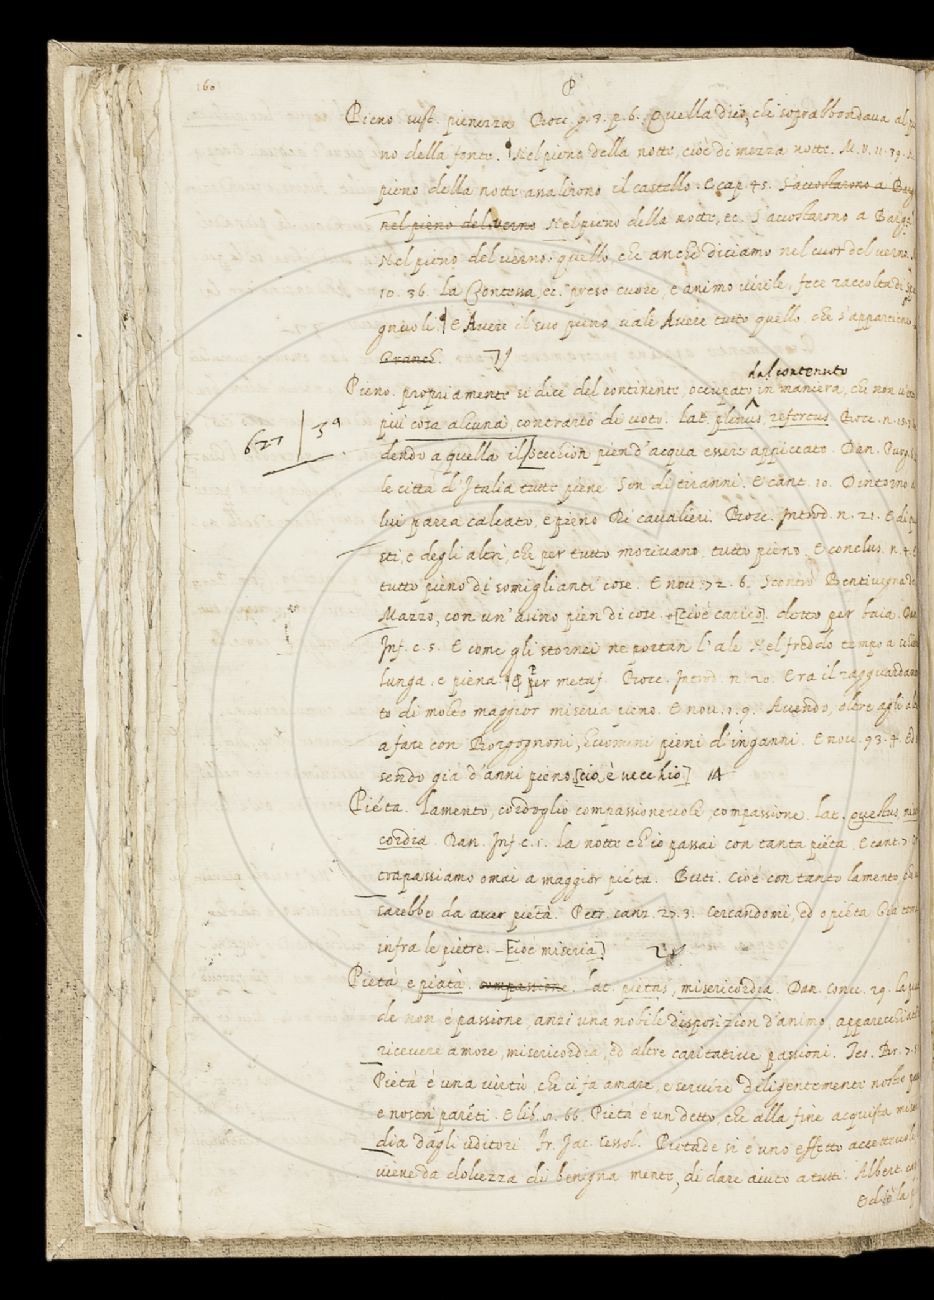 160
P
Pieno sust. pienezza Bocc. g. 3. p. 6. Quella dico, che soprabbondava al
no della fonte. Nel pieno della notte, cioè di mezza notte. M. V. 11. 39.
pieno della notte assalirono il castello. E cap. 45. S'accostarono a
nel pieno del verno Nel pieno della notte, ec. S'accostarono a
Nel pieno del verno. quello, che anche diciamo nel cuor del verno.
10. 36. La Contessa, ec. preso cuore, e animo virile, fece raccolta di
gnevoli. E Avere il suo pieno vale Avere tutto quello, che s'appartiene
Granch.
dal contenuto
Pieno. propriamente si dice del continente occupato in maniera, che non
più cosa alcuna, contrario di voto. Lat. plenus, refertus. Bocc. n.
627 | 39
dendo a quella il secchion pien d'acqua essere appiccato. Dan. Purg.
le città d'Italia tutte piene Son di tiranni. E cant. 10. D'intorno a
lui parea calcato, e pieno Di cavalieri. Bocc. Introd. n. 21. E di
sti, e degli altri, che per tutto morivano, tutto pieno. E conclus. n. 4.
tutto pieno di somiglianti cose. E nov. 72. 6. Scontrò Bentivegna del
Mazzo, con un' asino pien di cose. [cioè carico] detto per baia.
Inf. c. 5. E come gli stornei ne portan l'ale Nel freddo tempo a
lunga, e piena. per metaf. Bocc. Introd. n. 20. Era il ragguardamen
to di molto maggior miseria pieno. E nov. 1. 9. Avendo, oltre agli
a fare con Borgognoni, uomini pieni d'inganni. E nov. 93. 4.
sendo già d'anni pieno [cio, è vecchio]
Piéta. Lamento, cordoglio compassionevole, compassione. Lat. questus,
cordia. Dan. Inf. c. 1. La notte ch'io passai con tanta piéta. E cant. 7.
trapassiamo omai a maggior piéta. Buti. Cioè con tanto lamento,
sarebbe da aver pietà. Petr. canz. 27. 3. Cercandomi, ed o piéta Già
infra le pietre. [cioè miseria]
Pietà, e piatà. compassione. Lat. pietas, misericordia. Dan. Conv. 29. La
de non è passione, anzi una nobile disposizion d'animo, apparecchiata
ricevere amore, misericordia, ed altre caritative passioni. Tes. Br. 7.
Pietà è una virtù, che ci fa amare, e servire diligentemente nostro
e nostri parenti. E lib. 66. Pietà è un detto, che alla fine acquista
dia dagli uditori. Fr. Jac. Cessol. Pietade si è uno effetto
viene da dolcezza di benigna mente, di dare aiuto a tutti. Albert.